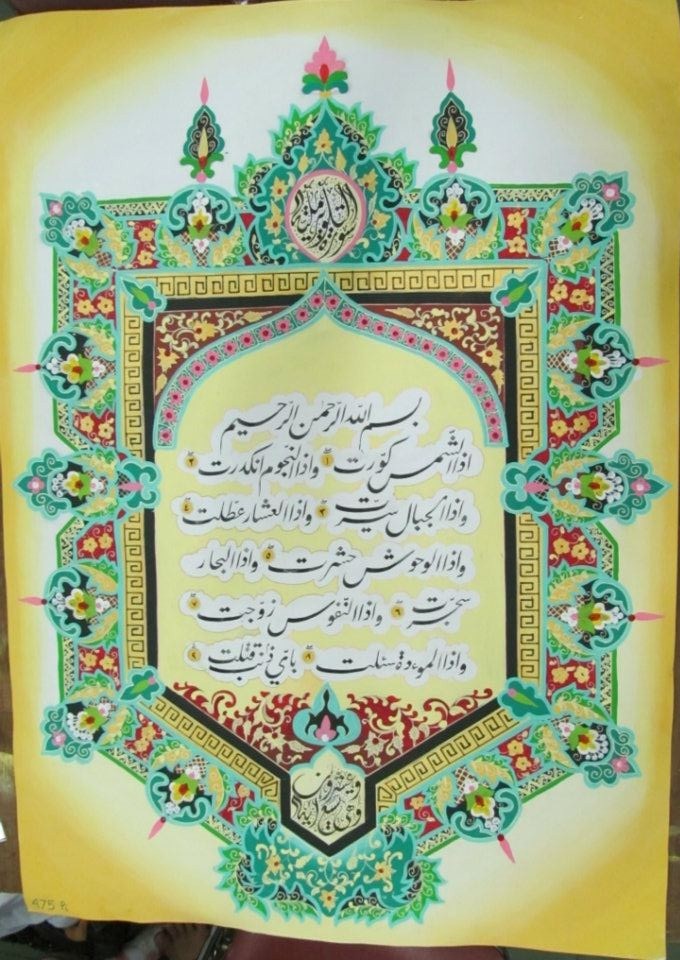 سورة التكوير مكية
بسم الله الرحمن الرحيم
اذا الشمس كوّرت ١ واذا النجوم انكدرت ٢
واذا الجبال سيّرت ٣ واذا العشار عطّلت ٤
واذا الوحوش حشرت ٥ واذا البحار
سجّرت ٦ واذا النّفوس زوّجت ٧
واذا الموءدة سئلت ٨ بايّ ذنب قتلت ٩
وهي تسع وعشرون آية
475